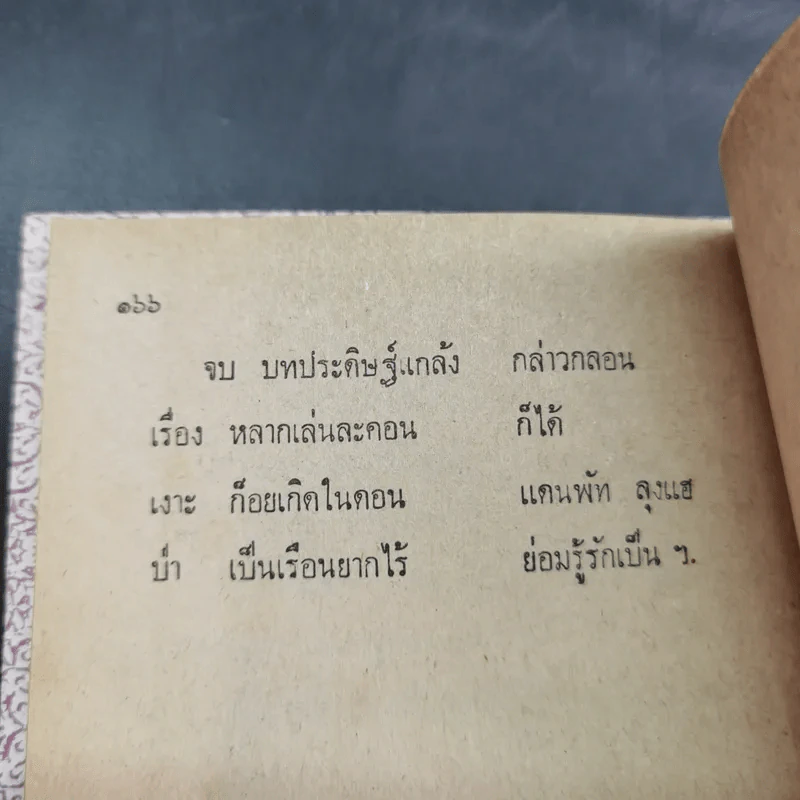 ๑๖๖
จบ บทประดิษฐ์แกล้ง กล่าวกลอน
เรื่อง หลากเล่นละคอน ก็ได้
เงาะ ก็อยเกิดในดอน แดนพัท ลุงแฮ
ป่า เป็นเรือนยากไร้ ย่อมรู้รักเป็น ฯ.